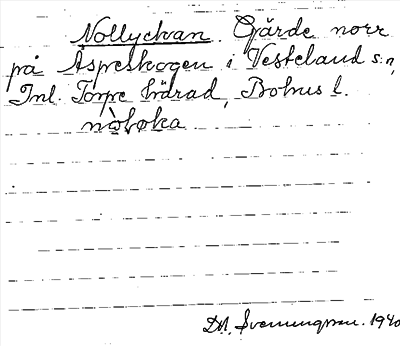 Nollyckan. Gärde norr
på Aspeskogen i Vesteland s:n,
Inl. Torpe härad, Bohus l.
nòl̥øka
D.N. Svenningsson. 1940